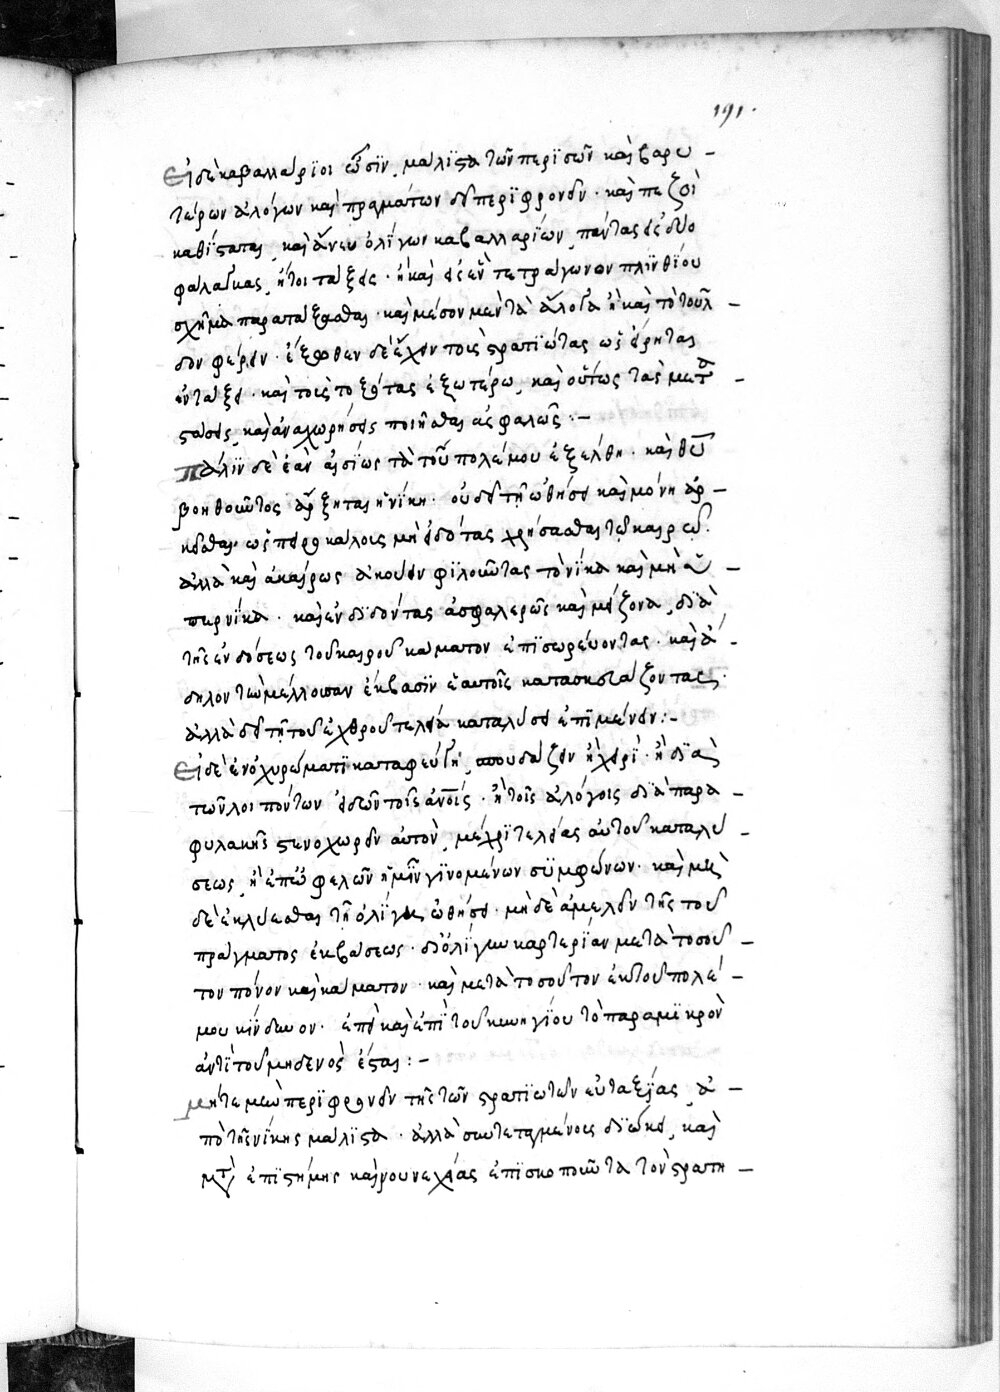 191.
Εἰ δὲ καβαλλάριοι ὦσιν, μάλιστα τῶν περισσῶν καὶ βαρυ –
τέρων ἀλόγων καὶ πραγμάτων οὐ περιφρονεῖν. καὶ πεζοὶ
καθίστανται, καὶ ἄνευ ὀλίγων καβαλλαρίων, πάντας εἰς δύο
φάλαγκας, ἤτοι τάξεις. ἢ καὶ εἰς ἓν τετράγωνον πλινθίου
σχῆμα παρατάξασθαι. καὶ μέσον μὲν τὰ ἄλογα ἢ καὶ τὸ τοῦλ –
δον φέρειν. ἔξωθεν δὲ ἔχειν τοὺς στρατιώτας ὡς εἴρηται
ἐν τάξει. καὶ τοὺς τοξότας ἐξωτέρω, καὶ οὕτως τὰς μετα –
στάσεις, καὶ ἀναχωρήσεις ποιῆσθαι ἀσφαλῶς : –
Πάλιν δὲ ἐὰν αἰσίως τὰ τοῦ πολέμου ἐξέλθῃ. καὶ θεοῦ
βοηθοῦντος ἄρξηται ἡ νίκη. οὐ δεῖ τῇ ὠθήσει καὶ μόνῃ ἀρ –
κεῖσθαι. ὥσπερ καλοῖς μὴ εἰδότας χρήσασθαι τῷ καιρῷ.
ἀλλὰ καὶ ἀκαίρως ἀκούειν φιλοῦντας τὸ νίκα καὶ μὴ ὑ –
περνίκα. καὶ ἐνδιδόντας ἀσφαλερῶς καὶ μείζονα, διὰ
τῆς ἐνδόσεως τοῦ καιροῦ κάματον ἐπισωρεύοντας. καὶ ἄ –
δηλον τὴν μέλλουσαν ἔκβασιν ἑαυτοῖς κατασκευάζοντας.
ἀλλὰ δεῖ τῇ τοῦ ἐχθροῦ τελείᾳ καταλύσει ἐπιμένειν : –
Εἰ δὲ ἐν ὀχυρώματι καταφεύγῃ, σπουδάζειν ἢ χειρὶ. ἢ διὰ
τῶν λειπόντων εἰδῶν τοῖς ἀνοις. ἢ τοῖς ἀλόγοις διὰ παρα –
φυλακῆς στενοχωρεῖν αὐτὸν, μέχρι τελείας αὐτοῦ καταλύ –
σεως, ἢ ἐπωφελῶν ἡμῖν γινομένων συμφώνων. καὶ μὴ
δὲ ἐκλύεσθαι τῇ ὀλίγῃ ὠθήσει. μηδὲ ἀμελεῖν τῆς τοῦ
πράγματος ἐκβάσεως. δι' ὀλίγην καρτερίαν μετὰ τοσοῦ –
τον πόνον καὶ κάματον. καὶ μετὰ τοσοῦτον ἐκ τοῦ πολέ –
μου κίνδυνον. ἐπεὶ καὶ ἐπὶ τοῦ κυνηγίου τὸ παραμικρὸν
ἀντὶ τοῦ μηδενὸς ἔσται : –
Μήτε μὴν περιφρονεῖν τῆς τῶν στρατιωτῶν εὐταξίας, ἀ –
πὸ τῆς νίκης μάλιστα. ἀλλὰ συντεταγμένως διώκειν, καὶ
μετὰ ἐπιστήμης καὶ νουνεχείας ἐπισκοποῦντα τὸν στρατη –